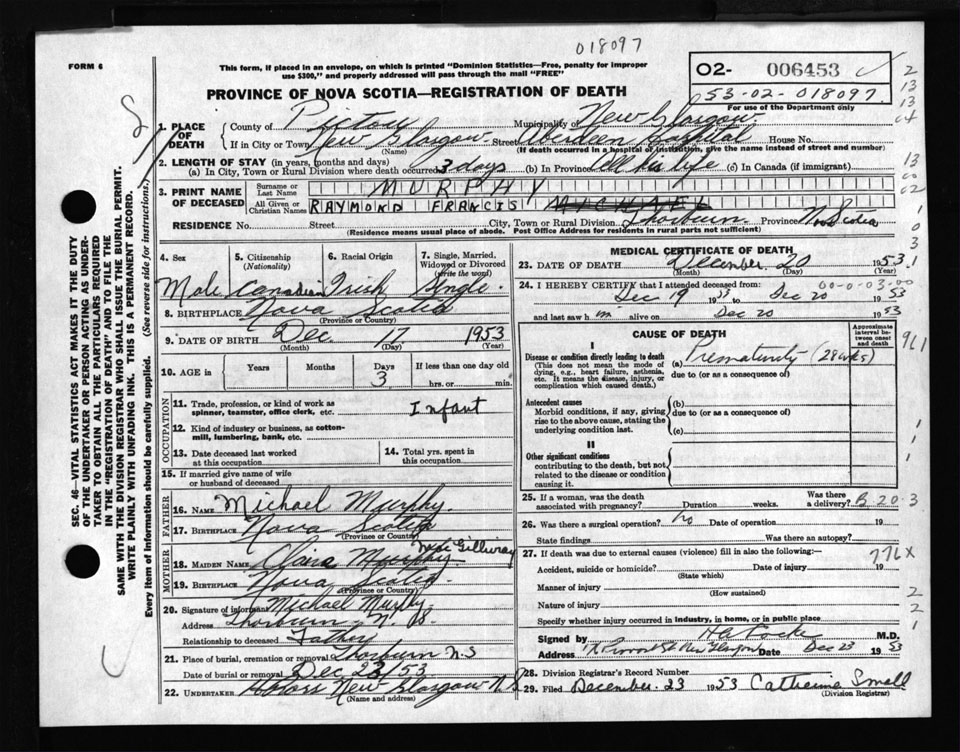 018097
FORM 6
This form, if placed in an envelope, on which is printed "Dominion Statistics—Free, penalty for improper
use $300," and properly addressed will pass through the mail "FREE"
02- 006453
53-02-018097
For use of the Department only
PROVINCE OF NOVA SCOTIA—REGISTRATION OF DEATH
1. PLACE OF DEATH
County of Pictou Municipality of New Glasgow
If in City or Town New Glasgow Street Aberdeen Hospital House No.
(Name) (If death occurred in a hospital or institution, give the name instead of street and number)
2. LENGTH OF STAY (in years, months and days)
(a) In City, Town or Rural Division where death occurred 3 days (b) In Province All his life (c) In Canada (if immigrant)
3. PRINT NAME OF DECEASED
Surname or Last Name MURPHY
All Given or Christian Names RAYMOND FRANCIS MICHAEL
RESIDENCE No. Street City, Town or Rural Division Thorburn Province Nova Scotia
(Residence means usual place of abode. Post Office Address for residents in rural parts not sufficient)
4. Sex
Male
5. Citizenship (Nationality)
Canadian
6. Racial Origin
Irish
7. Single, Married, Widowed or Divorced (write the word)
Single
8. BIRTHPLACE Nova Scotia
(Province or Country)
9. DATE OF BIRTH Dec 17 1953
(Month) (Day) (Year)
10. AGE in Years Months Days 3 If less than one day old
hrs. or min.
OCCUPATION
11. Trade, profession, or kind of work as spinner, teamster, office clerk, etc. Infant
12. Kind of industry or business, as cotton-mill, lumbering, bank, etc.
13. Date deceased last worked at this occupation
14. Total yrs. spent in this occupation
15. If married give name of wife or husband of deceased
FATHER
16. NAME Michael Murphy
17. BIRTHPLACE Nova Scotia
(Province or Country)
MOTHER
18. MAIDEN NAME Claire Murphy
19. BIRTHPLACE Nova Scotia
(Province or Country)
20. Signature of informant Michael Murphy
Address Thorburn N. S.
Relationship to deceased Father
21. Place of burial, cremation or removal Thorburn N.S
Date of burial or removal Dec 23/53
22. UNDERTAKER New Glasgow N.S
(Name and address)
MEDICAL CERTIFICATE OF DEATH
23. DATE OF DEATH December 20 1953
(Month) (Day) (Year)
24. I HEREBY CERTIFY that I attended deceased from:
00-0-03-00
Dec 19 1953 to Dec 20 1953
and last saw him alive on Dec 20 1953
CAUSE OF DEATH
Approximate interval between onset and death
I
Disease or condition directly leading to death (a) Prematurity (28 wks)
(This does not mean the mode of dying, e.g., heart failure, asthenia, etc. It means the disease, injury, or complication which caused death.)
due to (or as a consequence of)
Antecedent causes
Morbid conditions, if any, giving rise to the above cause, stating the underlying condition last.
(b)
due to (or as a consequence of)
(c)
II
Other significant conditions
contributing to the death, but not related to the disease or condition causing it.
25. If a woman, was the death associated with pregnancy? Duration weeks. Was there a delivery? B.20.3
26. Was there a surgical operation? No Date of operation 19
State findings Was there an autopsy?
27. If death was due to external causes (violence) fill in also the following:—
776X
Accident, suicide or homicide? Date of injury 19
(State which)
Manner of injury
(How sustained)
Nature of injury
Specify whether injury occurred in industry, in home, or in public place
Signed by M.D.
Address Provost St New Glasgow Date Dec 23 1953
28. Division Registrar's Record Number
29. Filed December 23 1953 Catherine Small
(Division Registrar)
SEC. 46—VITAL STATISTICS ACT MAKES IT THE DUTY
OF THE UNDERTAKER OR PERSON ACTING AS UNDER-
TAKER TO OBTAIN ALL THE PARTICULARS REQUIRED
IN THE "REGISTRATION OF DEATH" AND TO FILE THE
SAME WITH THE DIVISION REGISTRAR WHO SHALL ISSUE THE BURIAL PERMIT.
WRITE PLAINLY WITH UNFADING INK. THIS IS A PERMANENT RECORD.
Every item of information should be carefully supplied. (See reverse side for instructions.)